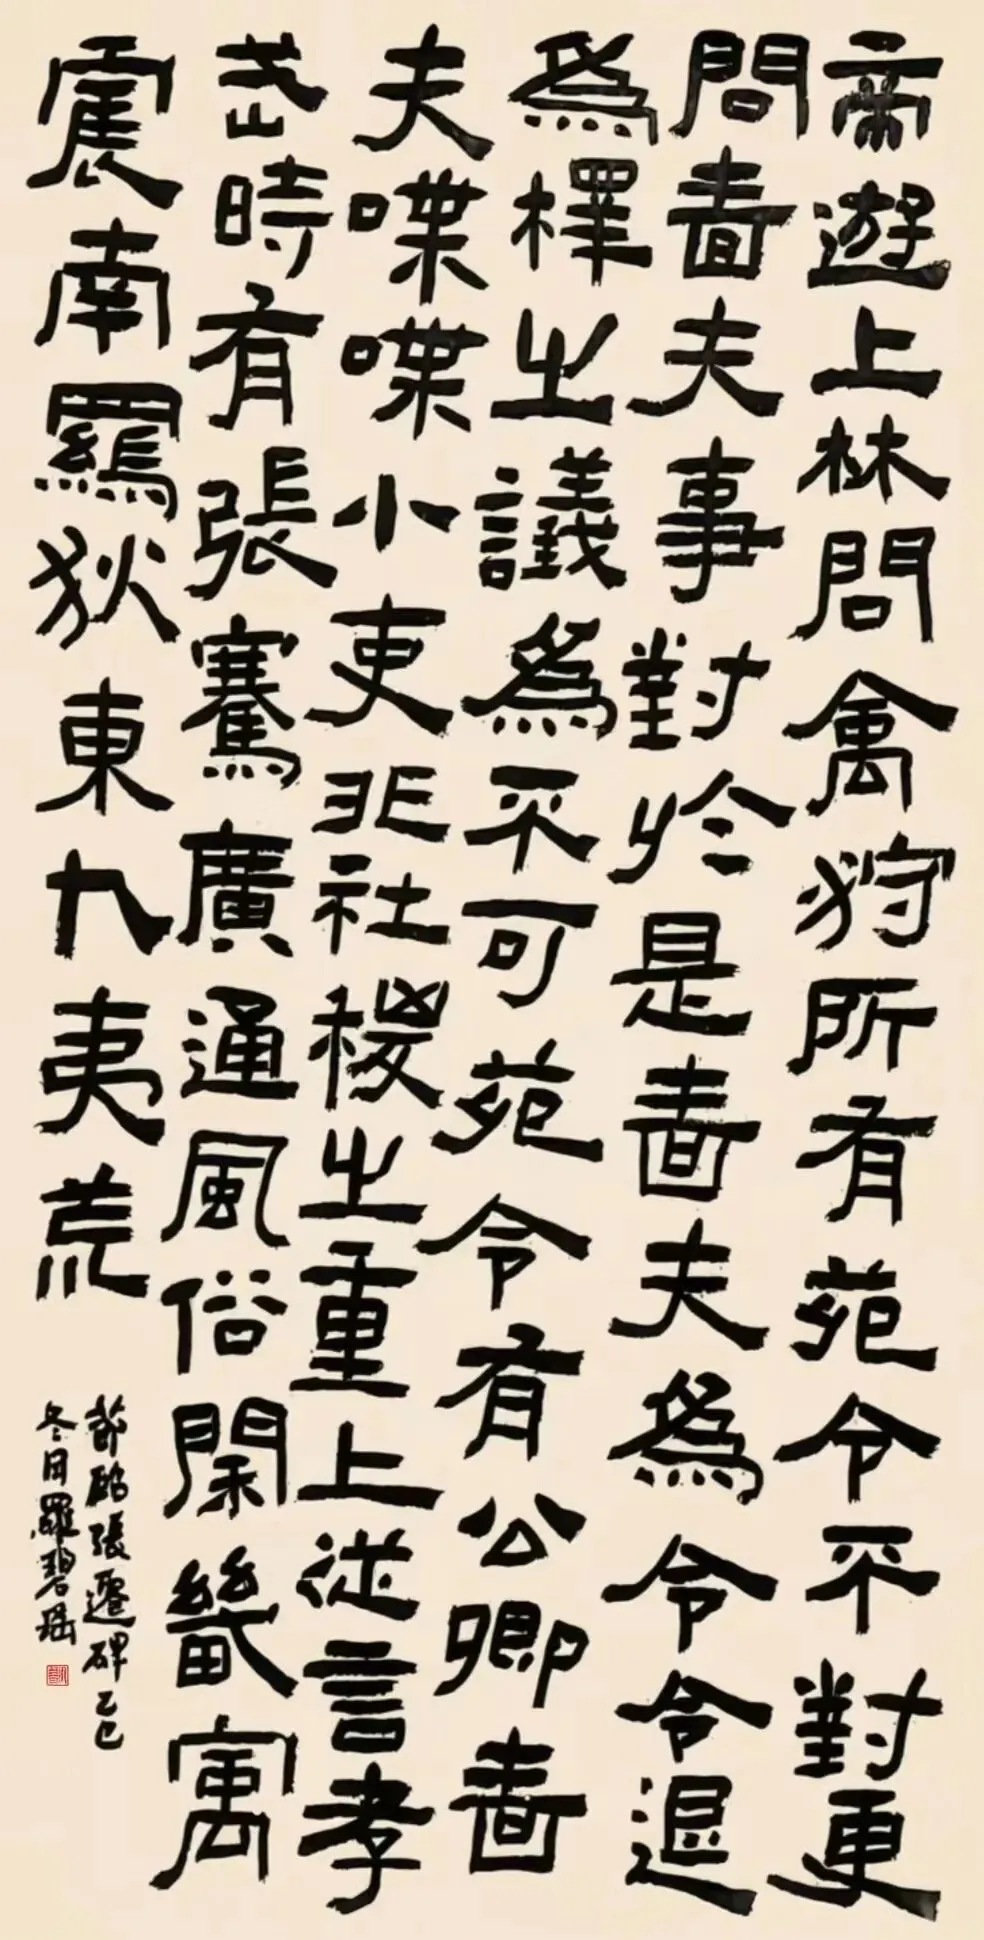 帝遊上林問禽狩所有苑令不對更
問嗇夫事對於是嗇夫為令令退
為檡之議為不可苑令有公卿嗇
夫喋喋小吏非社稷之重上從言孝
武時有張騫廣通風俗開畿寓
震南羈狄東九夷荒
節臨張遷碑乙巳
冬月羅碧瑤